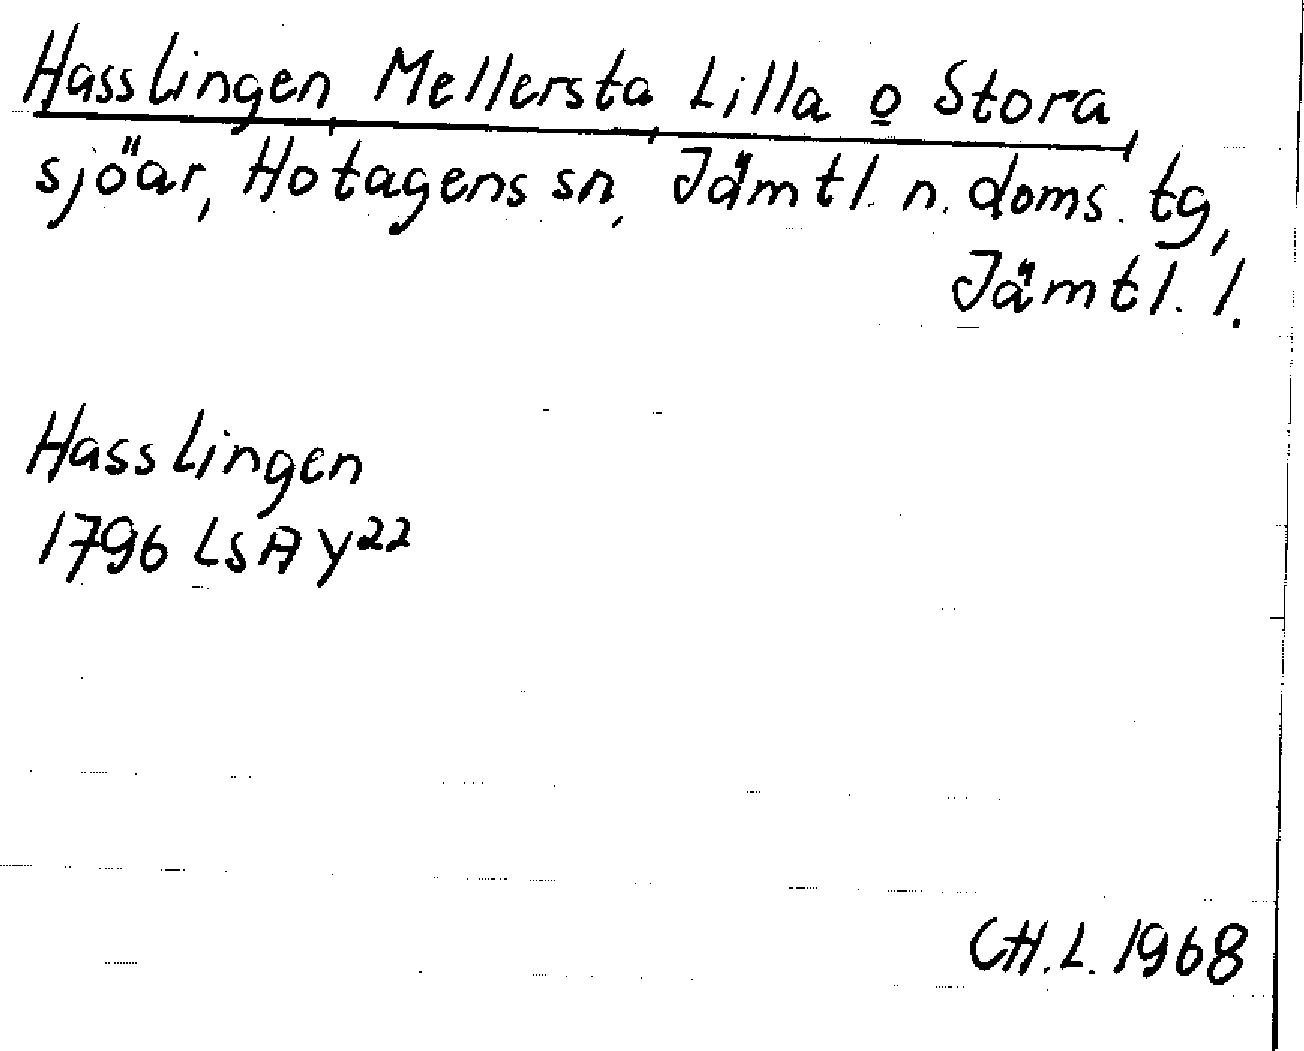 Hasslingen Mellersta Lilla o Stora,
sjöar, Hotagens sn, Jämtl. n. doms. tg,
Jämtl. l.
Hasslingen
1796 LSA Y²²
CH.L. 1968